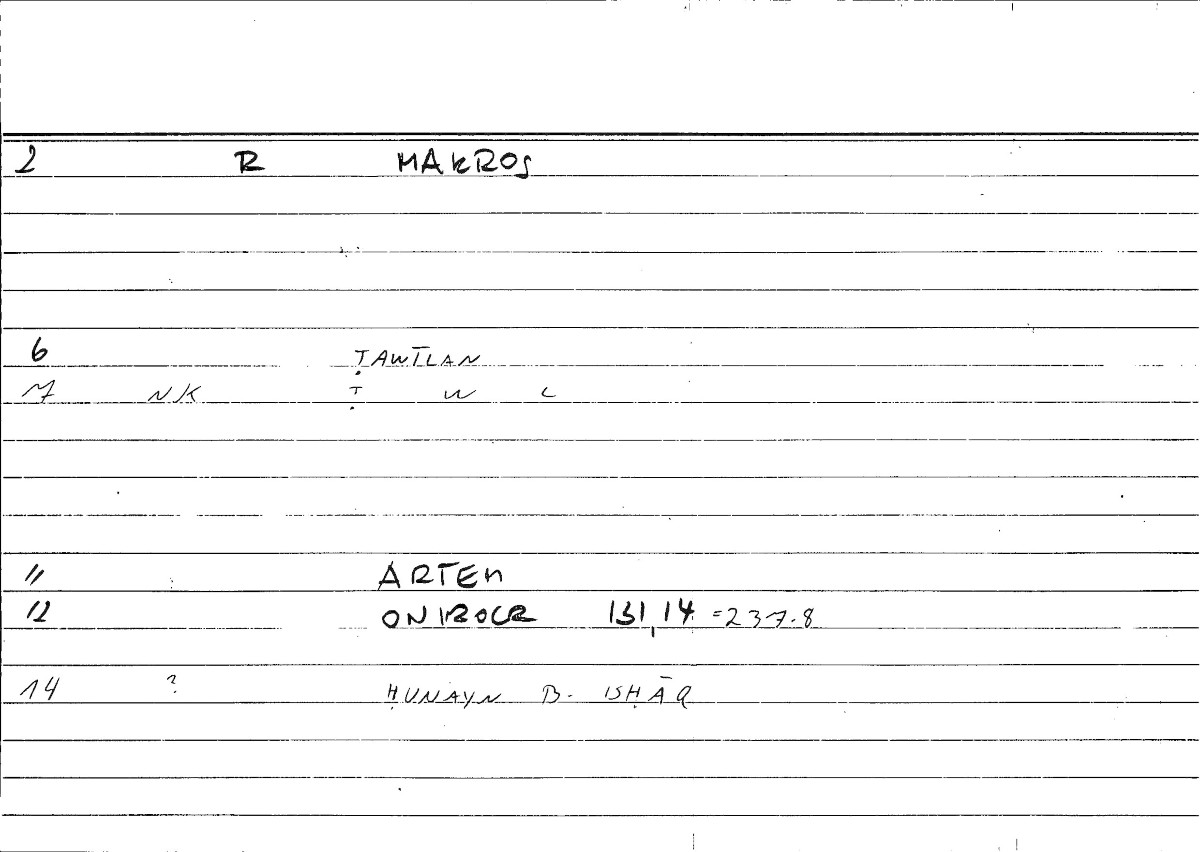 2 R MAKROS
6 ṬAWĪLAN
7 NK Ṭ W L
11 ARTEM
12 ONIROCR 131,14 =237.8
14 ? ḤUNAYN B. ISḤĀQ